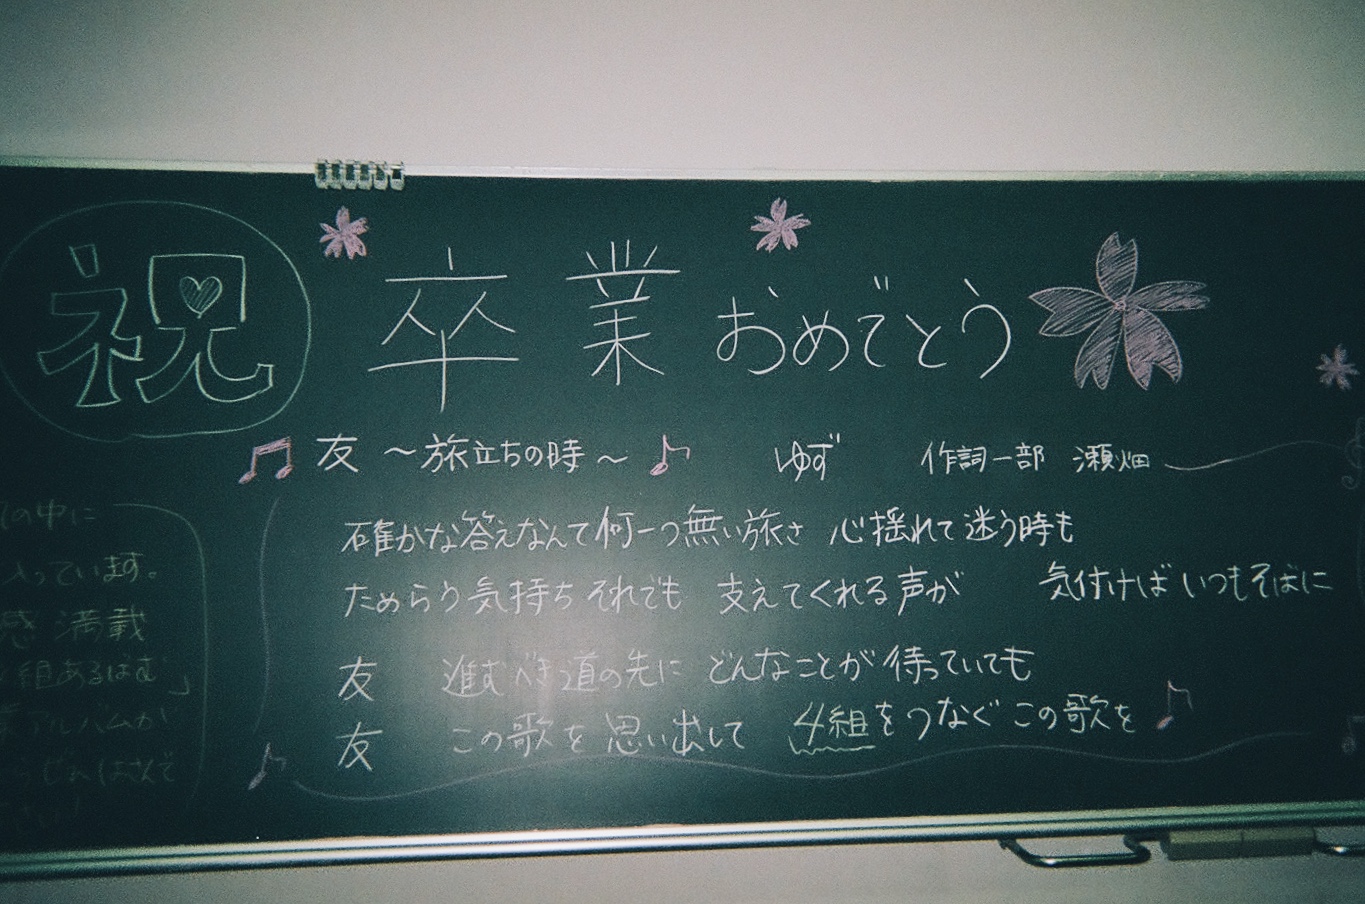 祝 卒業おめでとう
友 ～旅立ちの時～ ゆず 作詞一部 瀬畑
確かな答えなんて何一つ無い旅さ 心揺れて迷う時も
ためらう気持ちそれでも 支えてくれる声が 気付けばいつもそばに
友 進むべき道の先に どんなことが待っていても
友 この歌を思い出して 4組をつなぐこの歌を
の中に
入っています。
感満載
組あるばむ」
アルバムが